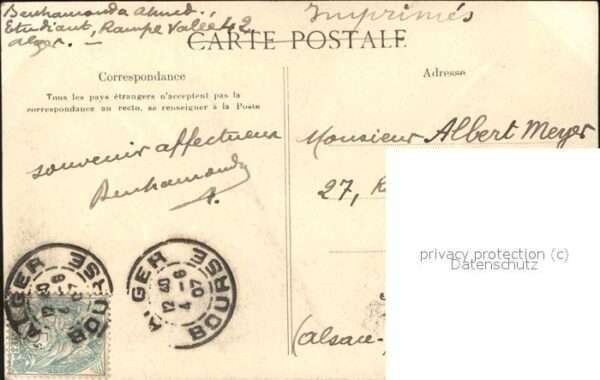 Benhamouda Ahmed.,
Etudiant, Rampe Vallée 42
Alger. —
Imprimés
CARTE POSTALE
Correspondance
Tous les pays étrangers n'acceptent pas la
correspondance au recto, se renseigner à la Poste
Adresse
souvenir affectueux
Benhamouda
A.
Monsieur Albert Meyer
27, R
(Alsace-
ALGER BOURSE
12 40
4 -6
07
ALGER BOURSE
12 40
4 -6
07
privacy protection (c)
Datenschutz